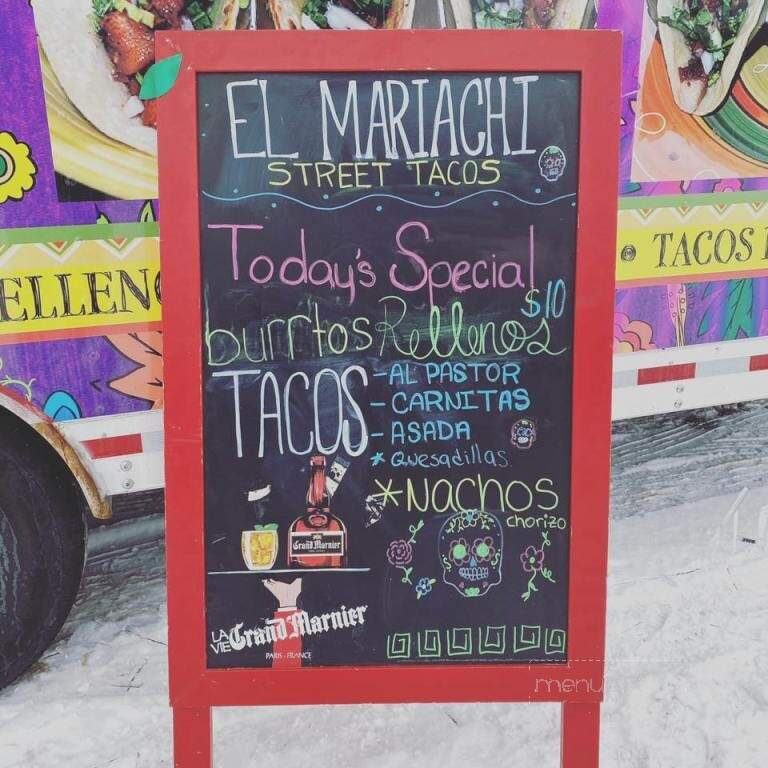 EL MARIACHI
STREET TACOS
Today's Special
$10
burritos Rellenos
TACOS
-AL PASTOR
-CARNITAS
-ASADA
* Quesadillas.
*NACHOS
chorizo
Grand Marnier
LA VIE Grand Marnier
PARIS - FRANCE
ELLENO
• TACOS
menu